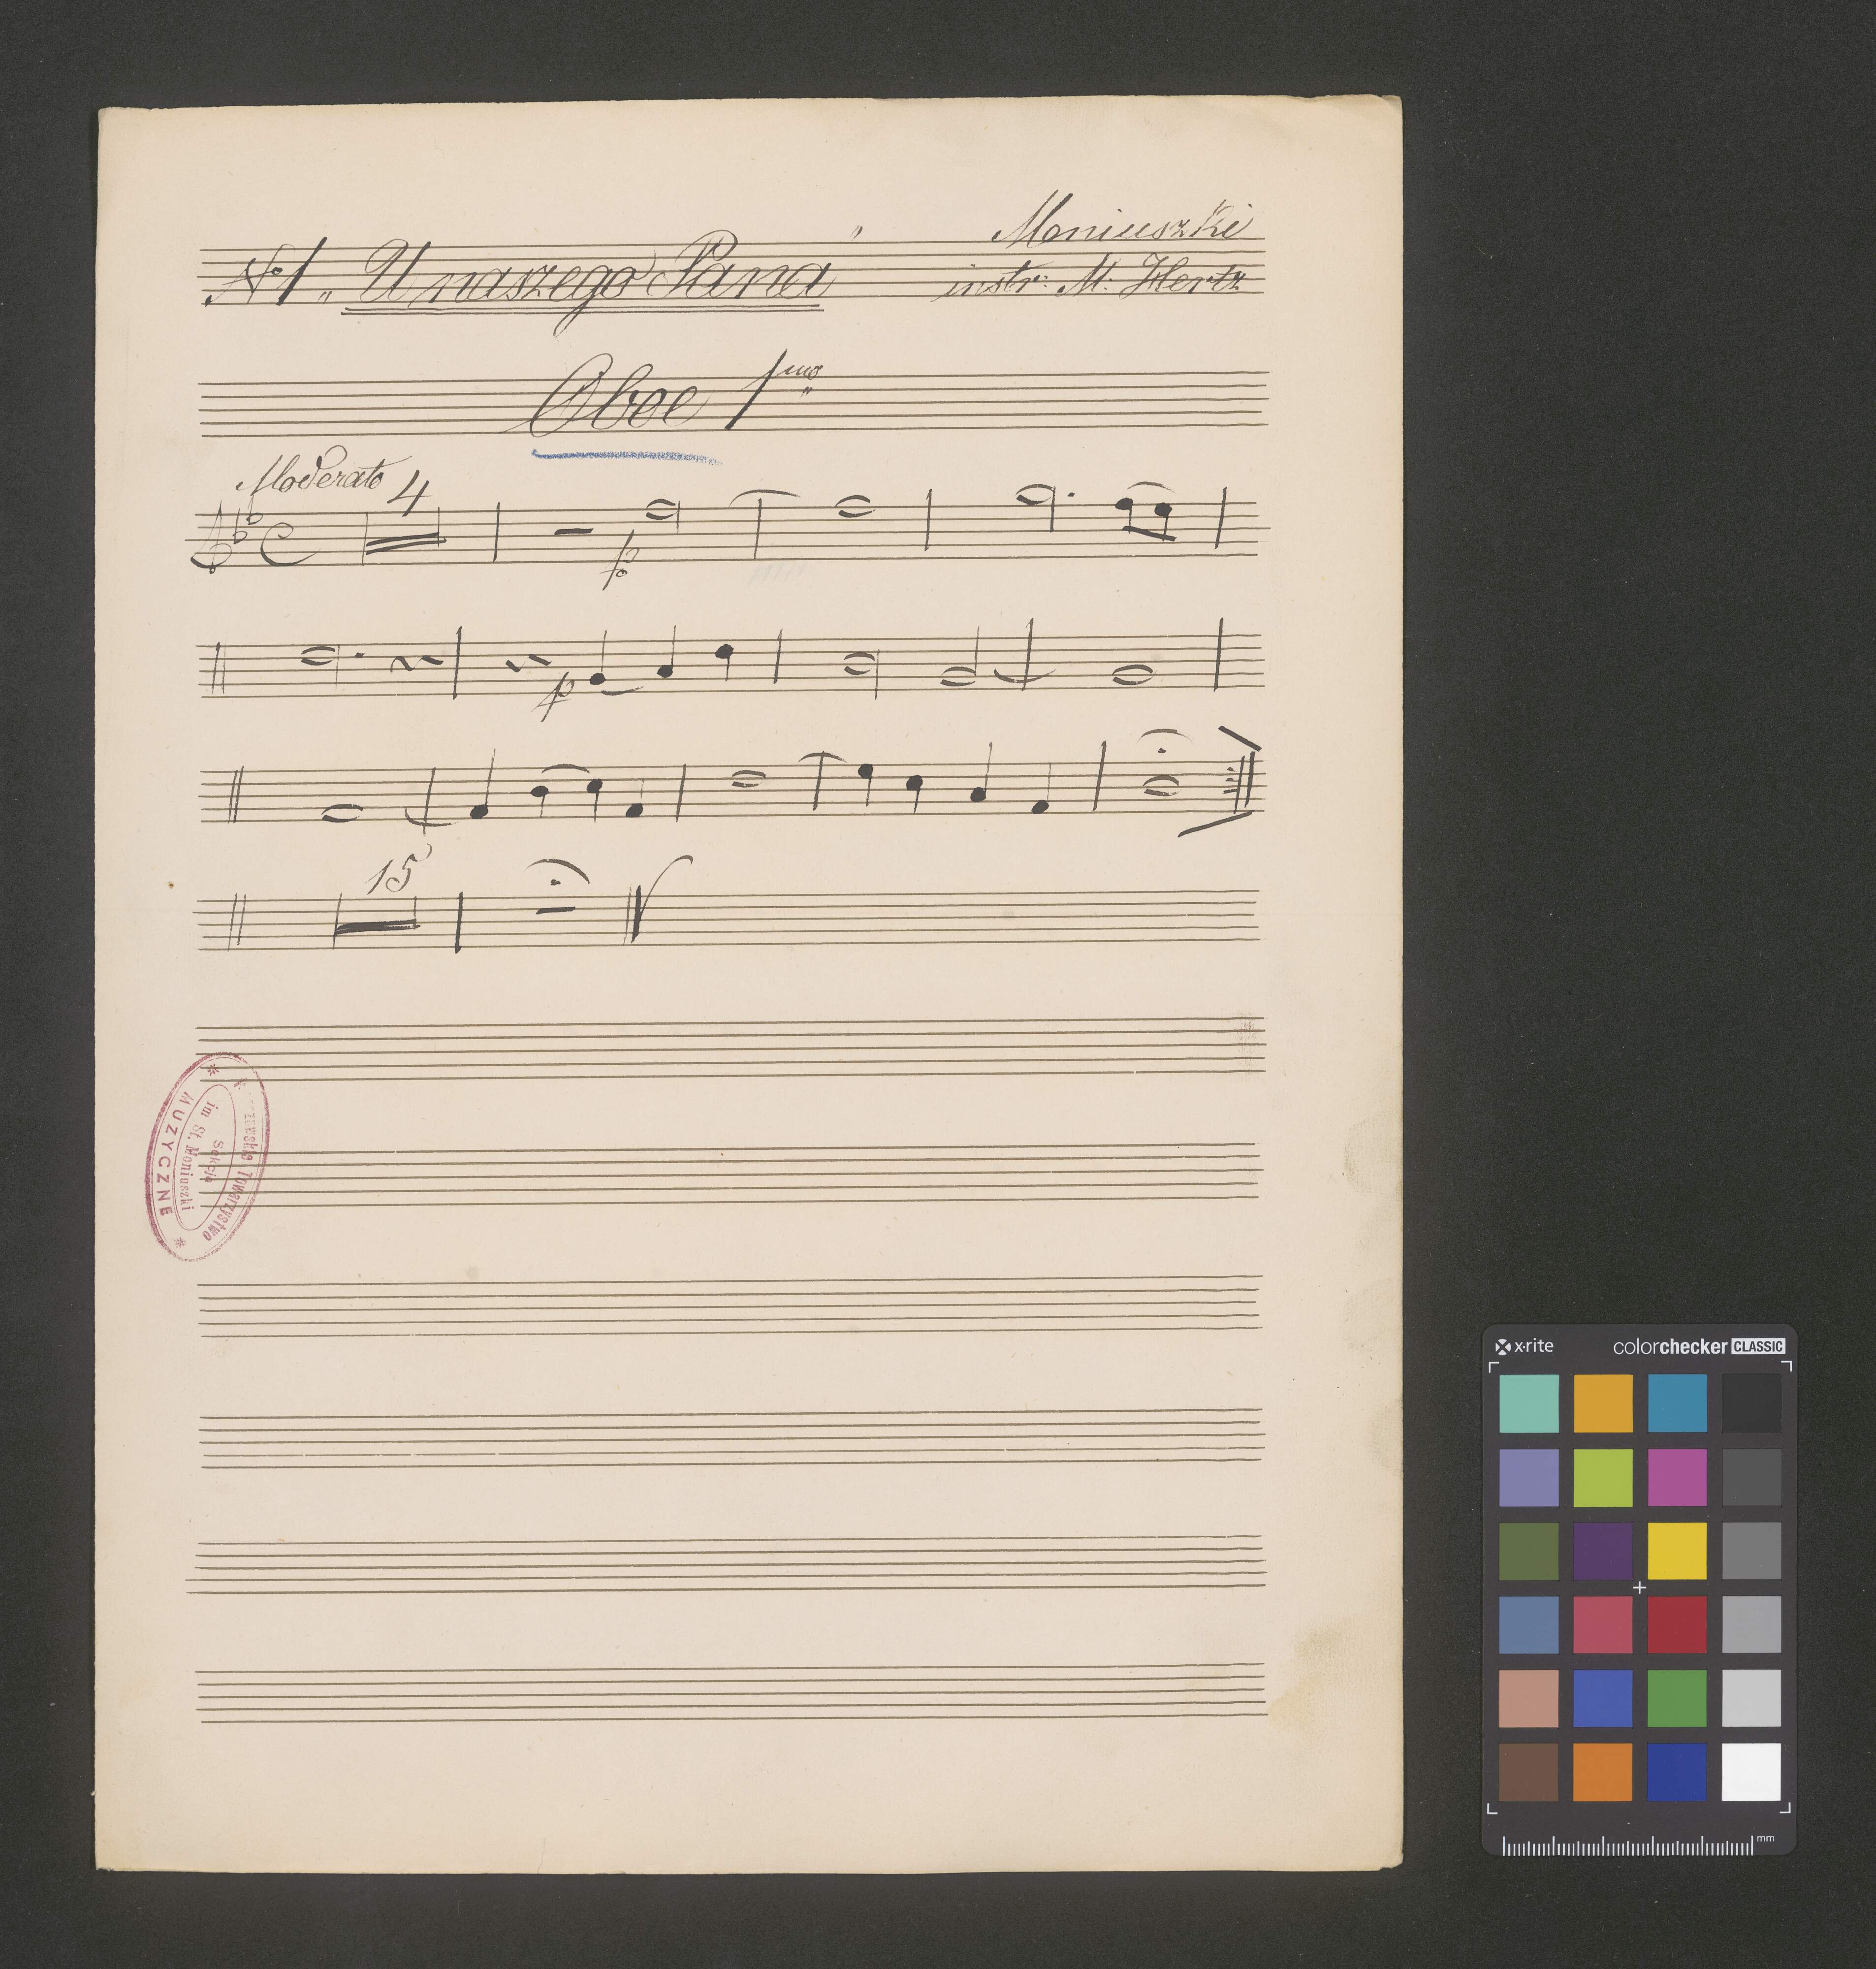 Moniuszki
№ 1 „U naszego Pana"
instr: M. Hertz
Oboe 1mo
Moderato
4
p
p
15
Towarzystwo
Sekcja
im St. Moniuszki
MUZYCZNE
x·rite
colorchecker CLASSIC
mm